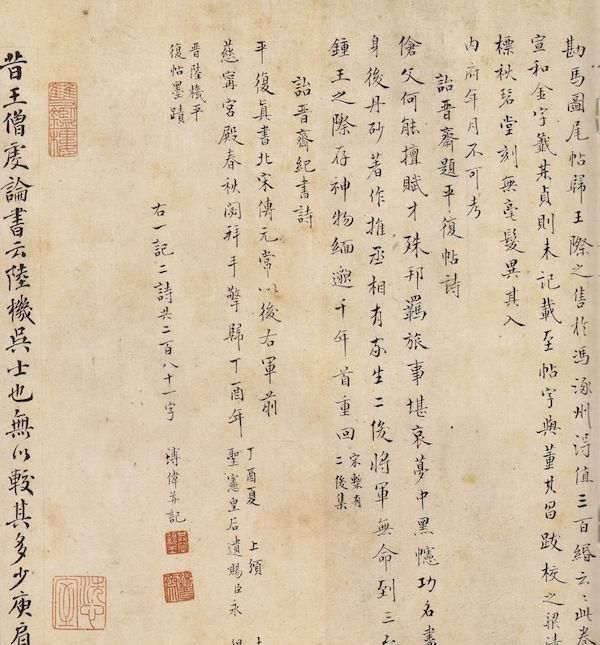 勘馬圖尾帖歸王際之售於馮涿州得值三百緡云云此卷
宣和金字籤某貞則未記載至帖字與董其昌跋校之梁清
標秋碧堂刻無毫髮異其入
內府年月不可考
詒晉齋題平復帖詩
傖父何能擅賦才殊邦羈旅事堪哀夢中黑幰功名盡
身後丹砂著作推丞相有家生二俊將軍無命到三台
鍾王之際存神物緬邈千年首重回
宋槧有
二俊集
詒晉齋紀書詩
平復真書北宋傳元常以後右軍前
慈寧宮殿春秋閱拜手擎歸丁酉年
丁酉夏 上頒
聖憲皇后遺賜臣永
晉陸機平
復帖墨蹟
右一記二詩共二百八十一字 溥偉並記
昔王僧虔論書云陸機吳士也無以較其多少庾肩